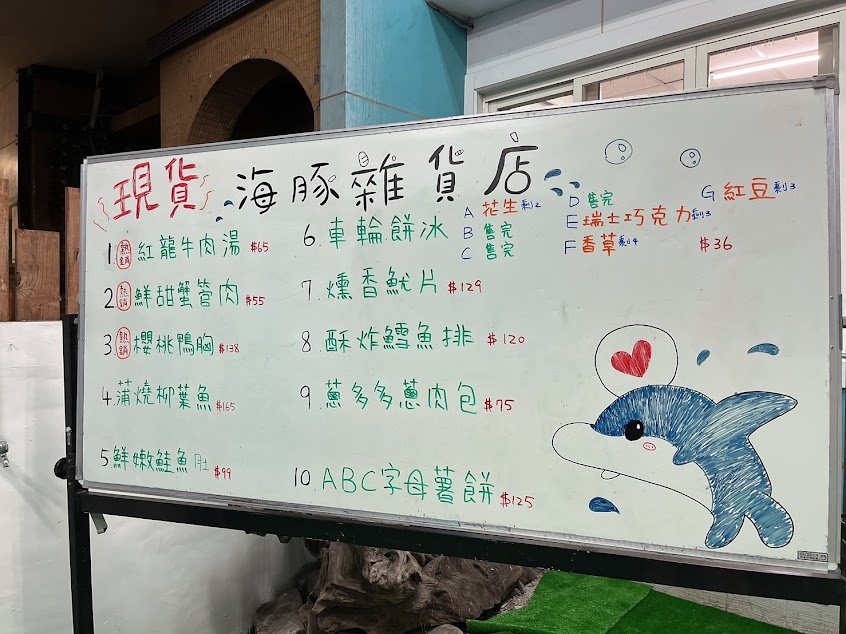 現貨 海豚雜貨店
1.熱銷 紅龍牛肉湯 $65
2.熱銷 鮮甜蟹管肉 $55
3.熱銷 櫻桃鴨胸 $138
4.蒲燒柳葉魚 $165
5.鮮嫩鮭魚肚 $99
6.車輪餅冰
A 花生 剩2
B 售完
C 售完
D 售完
E 瑞士巧克力 剩3
F 香草 剩4
G 紅豆 剩3
$36
7.燻香魷片 $129
8.酥炸鱈魚排 $120
9.蔥多多蔥肉包 $75
10 ABC字母薯餅 $125